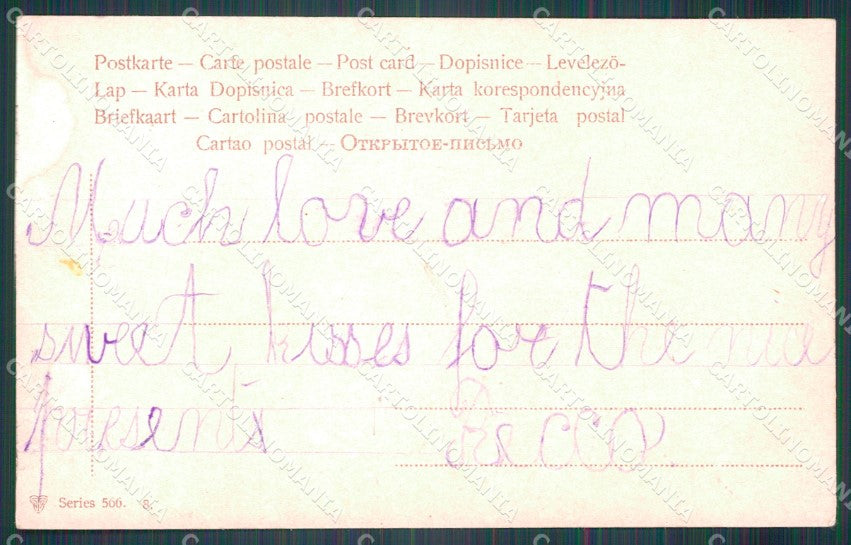 Postkarte — Carte postale — Post card — Dopisnice — Levelező-
Lap — Karta Dopisnica — Brefkort — Karta korespondencyjna
Briefkaart — Cartolina postale — Brevkort — Tarjeta postal
Cartao postal — Открытое-письмо
Much love and many
sweet kisses for the nice
presents
Series 566.
CARTOLINOMANIA